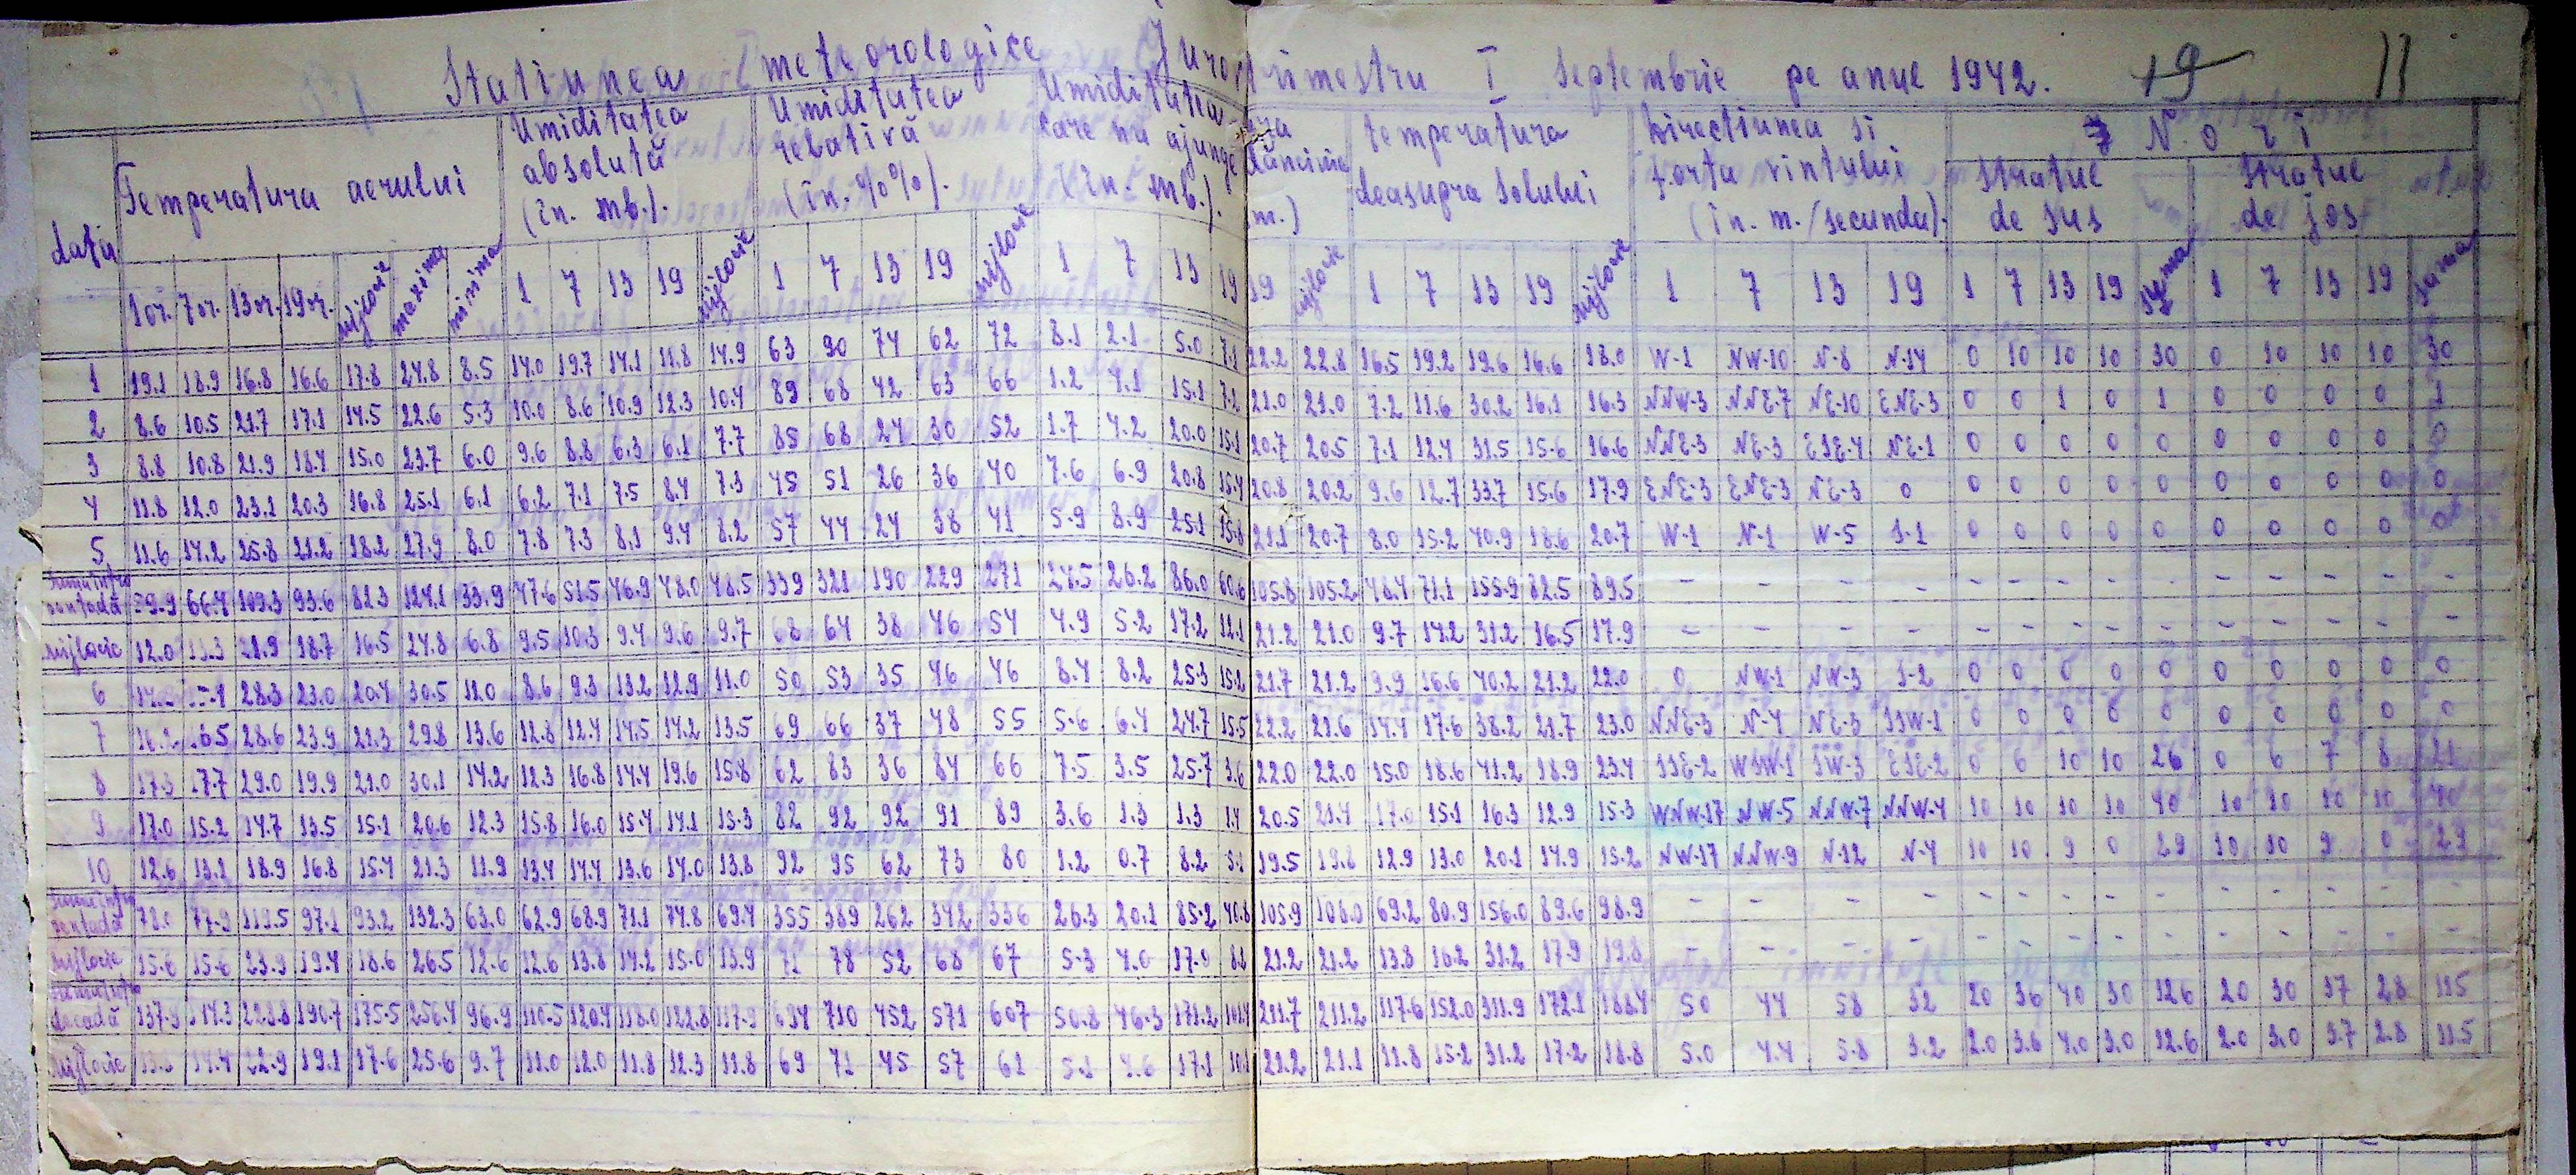 Statiunea meteorologice trimestru I Septembrie pe anul 1942. 19 11
data Temperatura aerului Umiditatea absolută (în. mb.). Umiditatea relativă (în. %%). Umiditatea care nu ajunge (în. mb.). temperatura deasupra solului Directiunea si forta vintului (în. m./secunda). N o r i
stratul de sus stratul de jos
1or. 7or. 13or. 19or. mijlocie maxima minima 1 7 13 19 mijlocie 1 7 13 19 mijlocie 1 7 13 19 19 mijlocie 1 7 13 19 mijlocie 1 7 13 19 1 7 13 19 suma 1 7 13 19 suma
1 19.1 18.9 16.8 16.6 17.8 24.8 8.5 14.0 19.7 14.1 11.8 14.9 63 90 74 62 72 8.1 2.1 5.0 7.1 22.2 22.8 16.5 19.2 19.6 16.6 18.0 W-1 NW-10 N-8 N-14 0 10 10 10 30 0 10 10 10 30
2 8.6 10.5 21.7 17.1 14.5 22.6 5.3 10.0 8.6 10.9 12.3 10.4 89 68 42 63 66 1.2 4.1 15.1 7.2 21.0 21.0 7.2 11.6 30.2 16.1 16.3 NNW-3 NNE-7 NE-10 ENE-3 0 0 1 0 1 0 0 0 0 1
3 8.8 10.8 21.9 18.4 15.0 23.7 6.0 9.6 8.8 6.3 6.1 7.7 85 68 24 30 52 1.7 4.2 20.0 15.1 20.7 20.5 7.1 12.4 31.5 15.6 16.6 NNE-3 NE-3 ESE-4 NE-1 0 0 0 0 0 0 0 0 0 0
4 11.8 12.0 23.1 20.3 16.8 25.1 6.1 6.2 7.1 7.5 8.4 7.3 45 51 26 36 40 7.6 6.9 20.8 15.4 20.8 20.2 9.6 12.7 33.7 15.6 17.9 ENE-3 ENE-3 NE-3 0 0 0 0 0 0 0 0 0 0 0
5 11.6 14.2 25.8 21.2 18.2 27.9 8.0 7.8 7.3 8.1 9.4 8.2 57 44 24 38 41 5.9 8.9 25.1 15.8 21.1 20.7 8.0 15.2 40.9 18.6 20.7 W-1 N-1 W-5 S-1 0 0 0 0 0 0 0 0 0 0
pentadă 59.9 66.4 109.3 93.6 82.3 124.1 33.9 47.6 51.5 46.9 48.0 48.5 339 321 190 229 271 24.5 26.2 86.0 60.6 105.8 105.2 48.4 71.1 155.9 82.5 89.5 - - - - - - - - - - - - - -
mijlocie 12.0 13.3 21.9 18.7 16.5 24.8 6.8 9.5 10.3 9.4 9.6 9.7 68 64 38 46 54 4.9 5.2 17.2 12.1 21.2 21.0 9.7 14.2 31.2 16.5 17.9 - - - - - - - - - - - - - -
6 28.3 23.0 20.4 30.5 11.0 8.6 9.3 13.2 12.9 11.0 50 53 35 46 46 8.4 8.2 25.3 15.2 21.7 21.2 9.9 16.6 40.2 21.2 22.0 0 NW-1 NW-3 S-2 0 0 0 0 0 0 0 0 0 0
7 28.6 23.9 21.3 29.8 13.6 12.8 12.4 14.5 14.2 13.5 69 66 37 48 55 5.6 6.4 24.7 15.5 22.2 21.6 14.4 17.6 38.2 21.7 23.0 NNE-3 N-4 NE-3 SSW-1 0 0 0 0 0 0 0 0 0 0
8 17.3 17.7 29.0 19.9 21.0 30.1 14.2 12.3 16.8 14.4 19.6 15.8 62 83 36 84 66 7.5 3.5 25.7 3.6 22.0 22.0 15.0 18.6 41.2 18.9 23.4 SSE-2 WSW-1 SW-3 ESE-2 0 6 10 10 26 0 6 7 8 21
9 17.0 15.2 14.7 13.5 15.1 20.6 12.3 15.8 16.0 15.4 14.1 15.3 82 92 92 91 89 3.6 1.3 1.3 1.4 20.5 21.4 17.0 15.1 16.3 12.9 15.3 WNW-17 NW-5 NNW-7 NNW-4 10 10 10 10 40 10 10 10 10 40
10 12.6 13.2 18.9 16.8 15.4 21.3 11.9 13.4 14.4 13.6 14.0 13.8 92 95 62 73 80 1.2 0.7 8.2 5.1 19.5 19.8 12.9 13.0 20.1 14.9 15.2 NW-17 NNW-9 N-12 N-4 10 10 9 0 29 10 10 9 0 29
pentadă 78.0 77.9 119.5 97.1 93.2 132.3 63.0 62.9 68.9 71.1 74.8 69.4 355 389 262 342 336 26.3 20.1 85.2 40.8 105.9 106.0 69.2 80.9 156.0 89.6 98.9 - - - - - - - - - - - - - -
mijlocie 15.6 15.6 23.9 19.4 18.6 26.5 12.6 12.6 13.8 14.2 15.0 13.9 71 78 52 68 67 5.3 4.0 17.0 8.2 21.2 21.2 13.8 16.2 31.2 17.9 19.8 - - - - - - - - - - - - - -
decadă 137.9 144.3 228.8 190.7 175.5 256.4 96.9 110.5 120.4 118.0 122.8 117.9 694 710 452 571 607 50.8 46.3 171.2 101.4 211.7 211.2 117.6 152.0 311.9 172.1 188.4 50 44 58 32 20 36 40 30 126 20 30 37 28 115
mijlocie 14.4 22.9 19.1 17.6 25.6 9.7 11.0 12.0 11.8 12.3 11.8 69 71 45 57 61 5.1 4.6 17.1 10.1 21.2 21.1 11.8 15.2 31.2 17.2 18.8 5.0 4.4 5.8 3.2 2.0 3.6 4.0 3.0 12.6 2.0 3.0 3.7 2.8 11.5